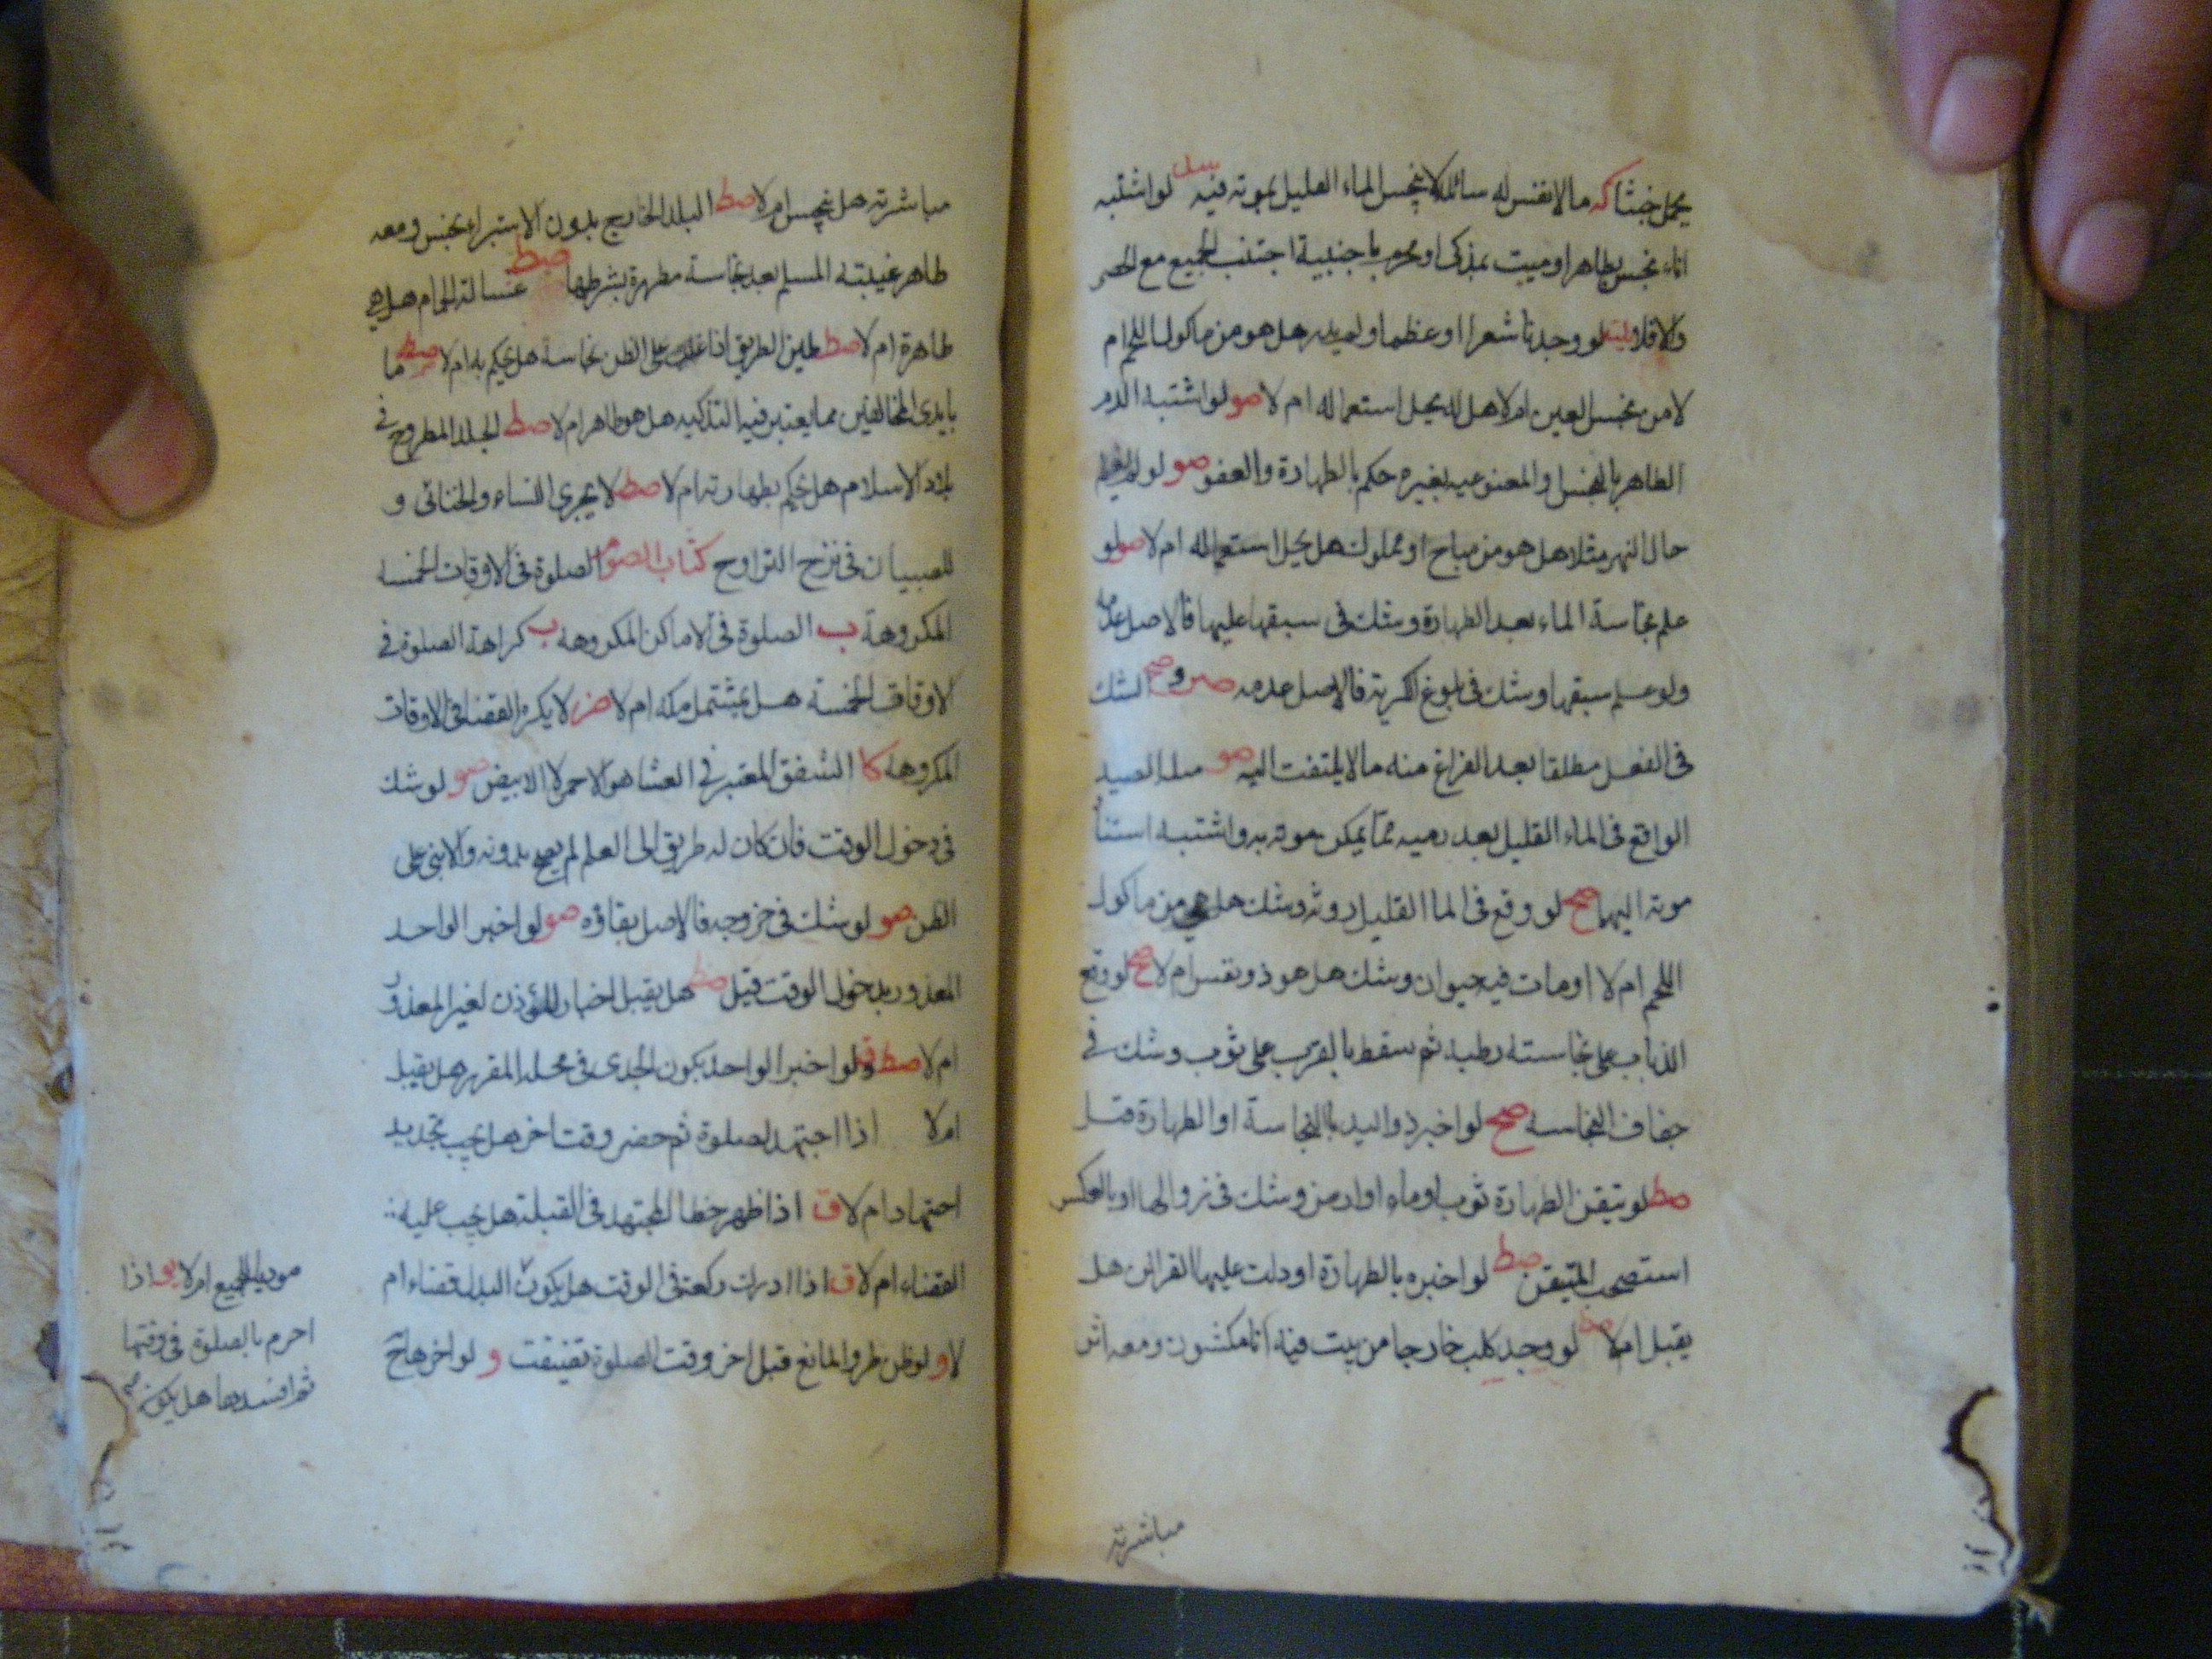 يحمل خبثا كه ما لا نفس له سائلة لا ينجس الماء القليل بموته فيه لو اشتبه
اناء نجس بطاهر او ميت بمذكى او محرم باجنبية اجتنب الجميع مع الحصر
والا فلا لو وجدنا شعرا او عظما ولم ندر هل هو من ماكول اللحم ام
لا من نجس العين ام لا هل له يحل استعماله ام لا صو لو اشتبه الدم
الطاهر بالنجس والمعفو عنه بغيره حكم بالطهارة والعفو صو لو لم يعلم
حال النهر مثلا هل هو من مباح او مملوك هل يحل استعماله ام لا صو لو
علم نجاسة الماء بعد الطهارة وشك فى سبقها عليها فالاصل عدمه
ولو علم سبقها وشك فى بلوغ الكرية فالاصل عدمه صح الشك
فى الفعل مطلقا بعد الفراغ منه مما لا يلتفت اليه صو مسئلة الصيد
الواقع فى الماء القليل بعد رميه بما يمكن موته به واشتبه استناد
موته اليهما صح لو وقع فى الما القليل روثه وشك هل هي من ماكول
اللحم ام لا او مات فيه حيوان وشك هل هو ذو نفس ام لا صح لو وقع
الذباب على نجاسته رطبه ثم سقط بالقرب على ثوب وشك فى
جفاف النجاسه صح لو اخبر ذو اليد بالنجاسة او الطهارة قبل
صط لو تيقن الطهارة ثوب او ماء او ارض وشك فى زوالها او بالعكس
استصحب المتيقن صط لو اخبره بالطهارة او دلت عليها القرائن هل
يقبل ام لا صط لو وجد كلب خارجا من بيت فيه انا مكشوف ومعه اثر
مباشرته
مباشرته هل ينجس ام لا صط البلل الخارج بدون الاستبراء نجس ومعه
طاهر غيبته المسلم بعد نجاسة مطهرة بشرطها صط غسالة الحمام هل هي
طاهرة ام لا صط طين الطريق اذا غلب على الظن نجاسة هل يحكم به ام لا صط ما
بايدى المخالفين مما يعتبر فيه التذكيه هل هو طاهر ام لا صط الجلد المطروح فى
بلاد الاسلام هل يحكم بطهارته ام لا صط لا يجرى النساء والخناثى و
للصبيان فى نزح التراوح كتاب الصلوة الصلوة فى الاوقات الخمسه
المكروهة ب الصلوة فى الاماكن المكروهه ب كراهة الصلوة فى
الاوقات الخمسة هل يشتمل مكه ام لا ضر لا يكره القضا فى الاوقات
المكروهه كا الشفق المعتبر فى العشا هو الاحمر لا الابيض صو لو شك
فى دخول الوقت فان كان له طريق الى العلم لم يصح بدونه والا بنى على
الظن صو لو شك فى خروجه فالاصل بقاؤه صو لو اخبر الواحد
المعذور بدخول الوقت قبل صط هل يقبل اخبار المؤذن لغير المعذور
ام لا صط ولو اخبر الواحد بكون الجدى فى محله المقرر هل يقبل
ام لا اذا اجتهد لصلوة ثم حضر وقت اخر هل يجب تجديد
اجتهاد ام لا ق اذا ظهر خطا المجتهد فى القبلة هل يجب عليه
القضاء ام لا ق اذا ادرك ركعة فى الوقت هل يكون البدل قضاء ام
لا و لو ظن طرو المانع قبل اخر وقت الصلوة تضيقت و لو اخرها
موديا للجميع ام لا اذا
احرم بالصلوة فى وقتها
ثم افسدها هل يكون